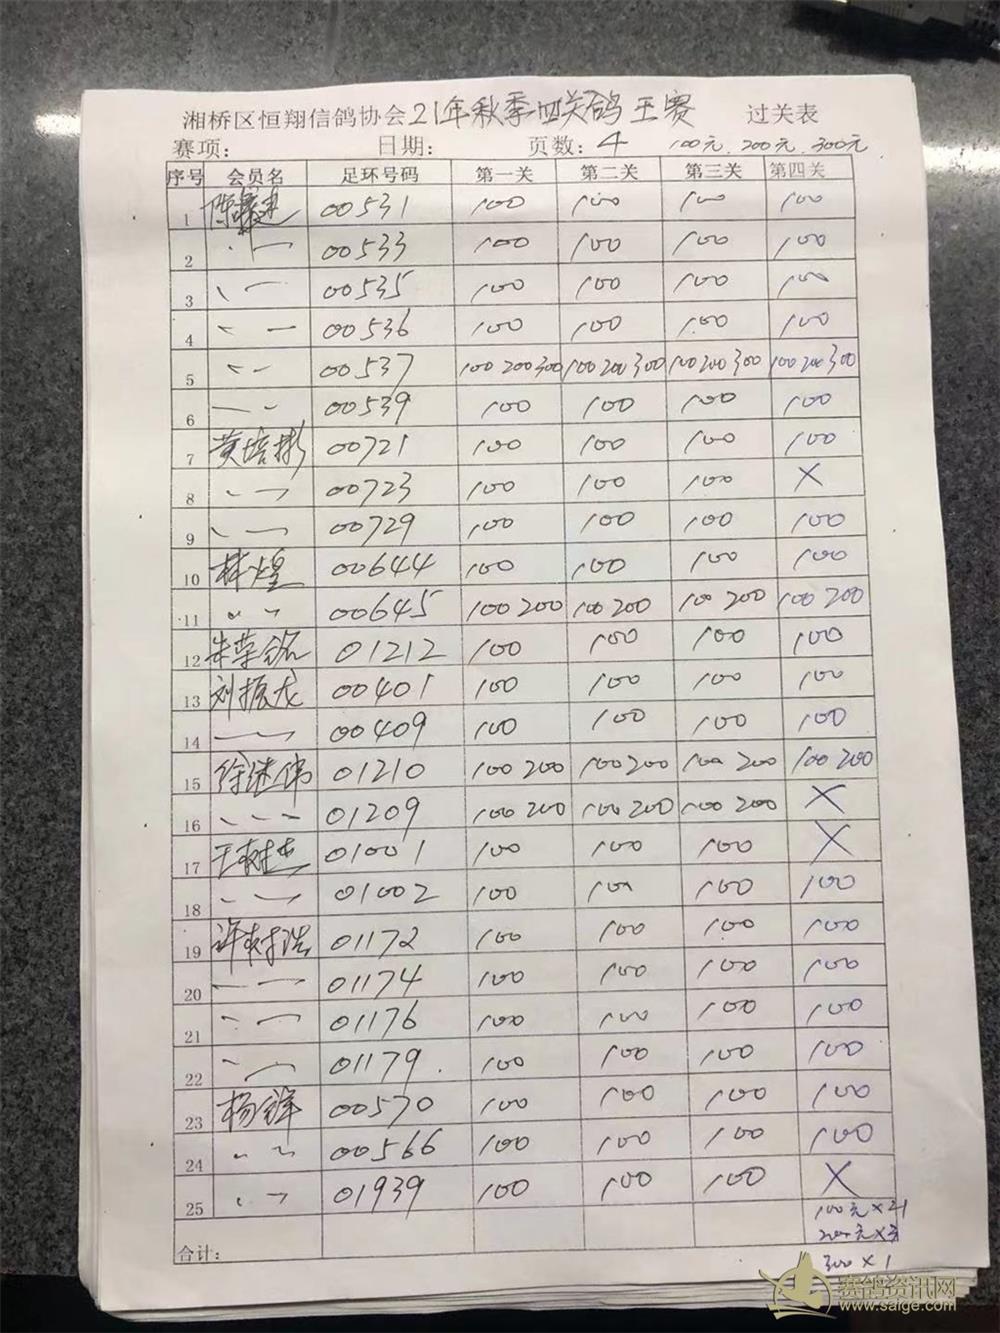 湘桥区恒翔信鸽协会21年秋季四关鸽王赛 过关表
赛项: 日期: 页数: 4 100元.200元.300元
序号 会员名 足环号码 第一关 第二关 第三关 第四关
1 陈 00531 100 100 100 100
2 〃 00533 100 100 100 100
3 〃 00535 100 100 100 100
4 〃 00536 100 100 100 100
5 〃 00537 100 200 300 100 200 300 100 200 300 100 200 300
6 〃 00539 100 100 100 100
7 黄培彬 00721 100 100 100 100
8 〃 00723 100 100 100 X
9 〃 00729 100 100 100 100
10 林煌 00644 100 100 100 100
11 〃 00645 100 200 100 200 100 200 100 200
12 朱荣铭 01212 100 100 100 100
13 刘振龙 00401 100 100 100 100
14 〃 00409 100 100 100 100
15 徐继伟 01210 100 200 100 200 100 200 100 200
16 〃 01209 100 200 100 200 100 200 X
17 王树杰 01001 100 100 100 X
18 〃 01002 100 100 100 100
19 许树浩 01172 100 100 100 100
20 〃 01174 100 100 100 100
21 〃 01176 100 100 100 100
22 〃 01179 100 100 100 100
23 杨锋 00570 100 100 100 100
24 〃 00566 100 100 100 100
25 〃 01939 100 100 100 X
合计: 100元×21
200元×3
300×1
赛鸽资讯网
www.saige.com